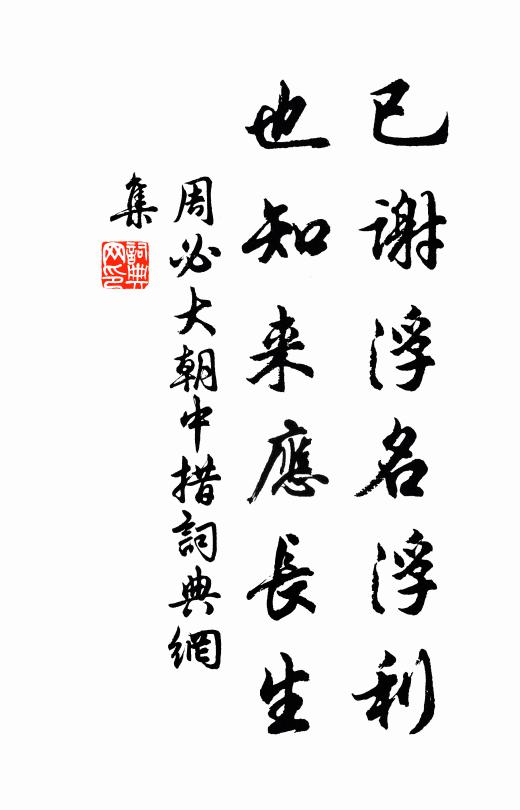 已谢浮名浮利
也知来應長生
周必大朝中措詞典網
集
詞典网印